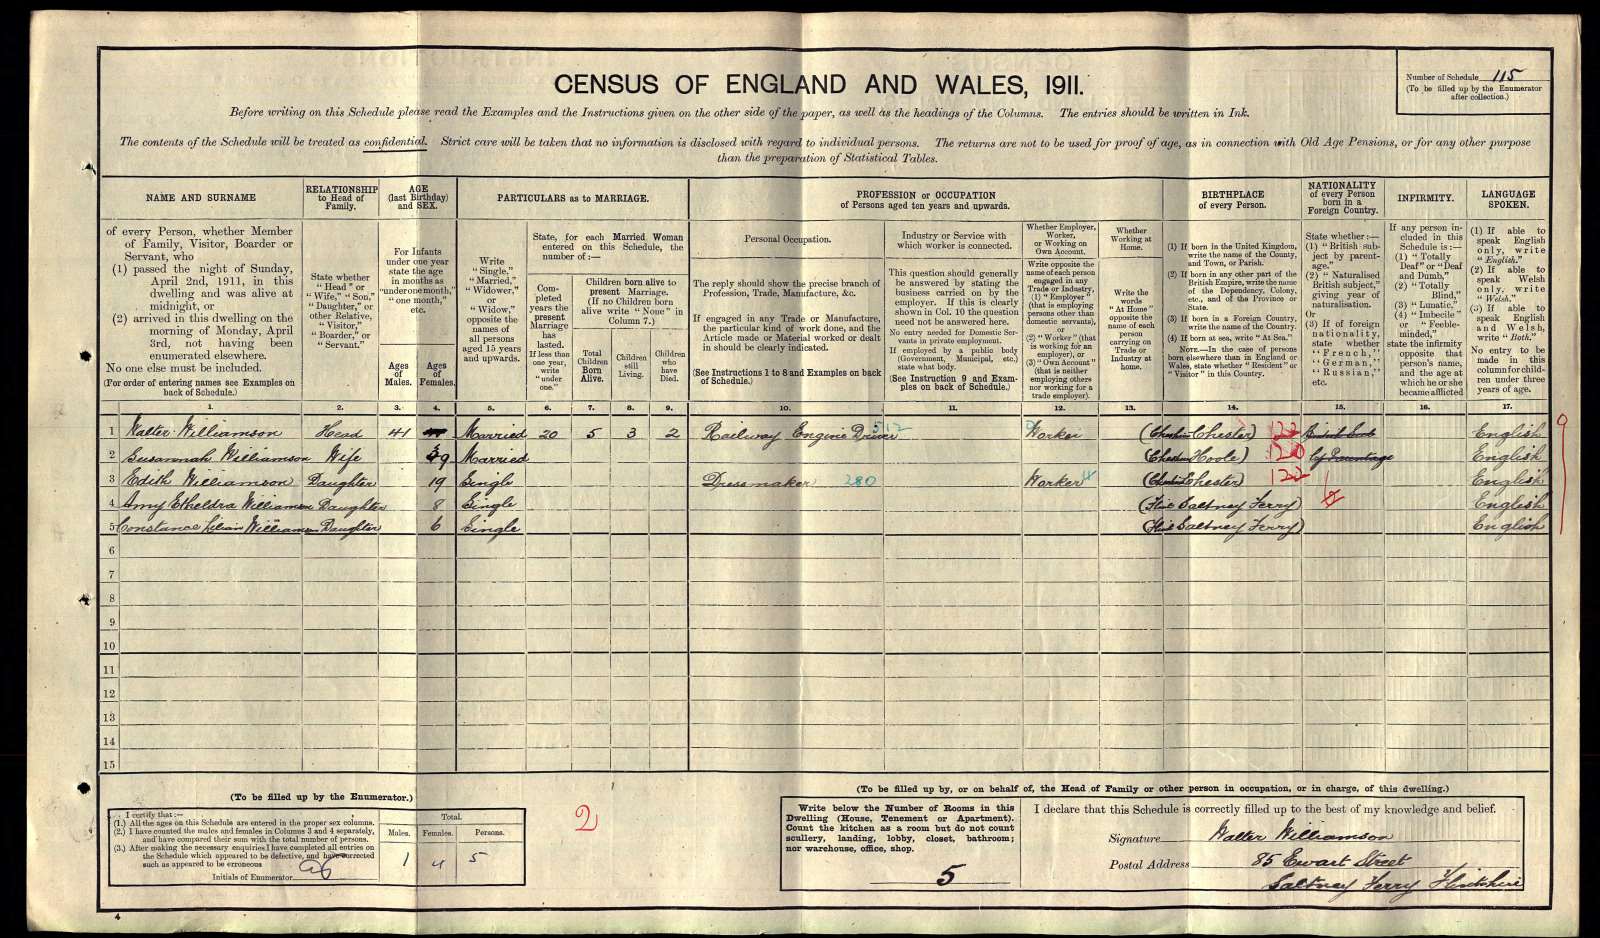 CENSUS OF ENGLAND AND WALES, 1911.
Number of Schedule 115
(To be filled up by the Enumerator
after collection.)
Before writing on this Schedule please read the Examples and the Instructions given on the other side of the paper, as well as the headings of the Columns. The entries should be written in Ink.
The contents of the Schedule will be treated as confidential. Strict care will be taken that no information is disclosed with regard to individual persons. The returns are not to be used for proof of age, as in connection with Old Age Pensions, or for any other purpose
than the preparation of Statistical Tables.
NAME AND SURNAME
of every Person, whether Member
of Family, Visitor, Boarder or
Servant, who
(1) passed the night of Sunday,
April 2nd, 1911, in this
dwelling and was alive at
midnight, or
(2) arrived in this dwelling on the
morning of Monday, April
3rd, not having been
enumerated elsewhere.
No one else must be included.
(For order of entering names see Examples on
back of Schedule.)
RELATIONSHIP
to Head of
Family.
State whether
"Head" or
"Wife," "Son,"
"Daughter," or
other Relative,
"Visitor,"
"Boarder," or
"Servant."
AGE
(last Birthday)
and SEX.
For Infants
under one year
state the age
in months as
"under one month,"
"one month,"
etc.
Ages
of
Males.
Ages
of
Females.
PARTICULARS as to MARRIAGE.
Write
"Single,"
"Married,"
"Widower,"
or
"Widow,"
opposite the
names of
all persons
aged 15 years
and upwards.
State, for each Married Woman
entered on this Schedule, the
number of:—
Completed
years the
present
Marriage
has
lasted.
If less than
one year,
write
"under
one."
Children born alive to
present Marriage.
(If no Children born
alive write "None" in
Column 7.)
Total
Children
Born
Alive.
Children
still
Living.
Children
who
have
Died.
PROFESSION or OCCUPATION
of Persons aged ten years and upwards.
Personal Occupation.
The reply should show the precise branch of
Profession, Trade, Manufacture, &c.
If engaged in any Trade or Manufacture,
the particular kind of work done, and the
Article made or Material worked or dealt
in should be clearly indicated.
(See Instructions 1 to 8 and Examples on back
of Schedule.)
Industry or Service with
which worker is connected.
This question should generally
be answered by stating the
business carried on by the
employer. If this is clearly
shown in Col. 10 the question
need not be answered here.
No entry needed for Domestic Servants
in private employment.
If employed by a public body
(Government, Municipal, etc.)
state what body.
(See Instruction 9 and Examples
on back of Schedule.)
Whether Employer,
Worker,
or Working on
Own Account.
Write opposite the
name of each person
engaged in any
Trade or Industry,
(1) "Employer"
(that is employing
persons other than
domestic servants),
or
(2) "Worker" (that
is working for an
employer), or
(3) "Own Account"
(that is neither
employing others
nor working for a
trade employer).
Whether
Working at
Home.
Write the
words
"At Home"
opposite the
name of each
person
carrying on
Trade or
Industry at
home.
BIRTHPLACE
of every Person.
(1) If born in the United Kingdom,
write the name of the County,
and Town, or Parish.
(2) If born in any other part of the
British Empire, write the name
of the Dependency, Colony,
etc., and of the Province or
State.
(3) If born in a Foreign Country,
write the name of the Country.
(4) If born at sea, write "At Sea."
NOTE.—In the case of persons
born elsewhere than in England or
Wales, state whether "Resident" or
"Visitor" in this Country.
NATIONALITY
of every Person
born in a
Foreign Country.
State whether:—
(1) "British subject
by parentage."
(2) "Naturalised
British subject,"
giving year of
naturalisation.
Or
(3) If of foreign
nationality,
state whether
"French,"
"German,"
"Russian,"
etc.
INFIRMITY.
If any person included
in this
Schedule is:—
(1) "Totally
Deaf" or "Deaf
and Dumb,"
(2) "Totally
Blind,"
(3) "Lunatic,"
(4) "Imbecile"
or "Feeble-minded,"
state the infirmity
opposite that
person's name,
and the age at
which he or she
became afflicted
LANGUAGE
SPOKEN.
(1) If able to
speak English
only, write
"English."
(2) If able to
speak Welsh
only, write
"Welsh."
(3) If able to
speak English
and Welsh,
write "Both."
No entry to be
made in this
column for children
under three
years of age.
1. 2. 3. 4. 5. 6. 7. 8. 9. 10. 11. 12. 13. 14. 15. 16. 17.
1 Walter Williamson Head 41 Married 20 5 3 2 Railway Engine Driver 512 Worker (Cheshire Chester) 122 English
2 Susannah Williamson Wife 39 Married (Cheshire Hoole) 120 English
3 Edith Williamson Daughter 19 Single Dressmaker 280 Worker (Cheshire Chester) 122 English
4 Amy Etheldra Williamson Daughter 8 Single (Flint Saltney Ferry) English
5 Constance Lilian Williamson Daughter 6 Single (Flint Saltney Ferry) English
6
7
8
9
10
11
12
13
14
15
9
(To be filled up by the Enumerator.)
I certify that:—
(1.) All the ages on this Schedule are entered in the proper sex columns.
(2.) I have counted the males and females in Columns 3 and 4 separately,
and have compared their sum with the total number of persons.
(3.) After making the necessary enquiries I have completed all entries on
the Schedule which appeared to be defective, and have corrected
such as appeared to be erroneous
Initials of Enumerator
Total.
Males. Females. Persons.
1 4 5
2
(To be filled up by, or on behalf of, the Head of Family or other person in occupation, or in charge, of this dwelling.)
Write below the Number of Rooms in this
Dwelling (House, Tenement or Apartment).
Count the kitchen as a room but do not count
scullery, landing, lobby, closet, bathroom;
nor warehouse, office, shop.
5
I declare that this Schedule is correctly filled up to the best of my knowledge and belief.
Signature Walter Williamson
Postal Address 85 Ewart Street
Saltney Ferry Flintshire
4